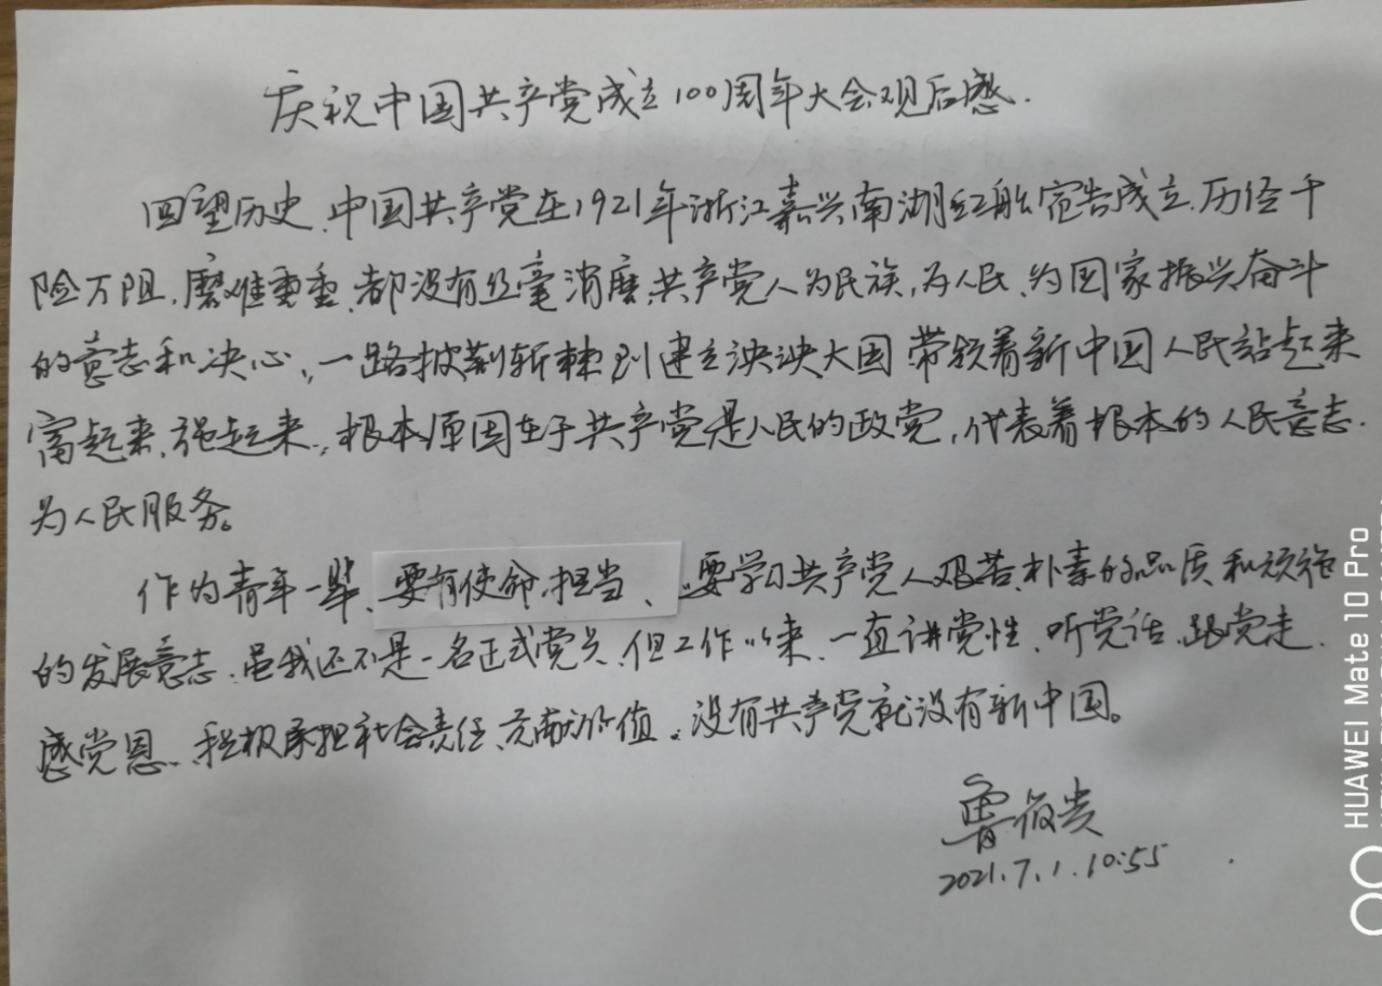 庆祝中国共产党成立100周年大会观后感.
回望历史,中国共产党在1921年浙江嘉兴南湖红船宣告成立,历经千
险万阻,磨难重重,都没有丝毫消磨,共产党人为民族,为人民,为国家振兴奋斗
的意志和决心,一路披荆斩棘到建立泱泱大国 带领着新中国人民站起来
富起来,强起来,根本原因在于共产党是人民的政党,代表着根本的人民意志.
为人民服务。
作为青年一辈,要有使命担当、要学习共产党人艰苦朴素的品质和顽强
的发展意志.虽我还不是一名正式党员,但工作以来,一直讲党性、听党话、跟党走.
感党恩、积极承担社会责任、贡献价值.没有共产党就没有新中国。
2021.7.1.10:55
HUAWEI Mate 10 Pro